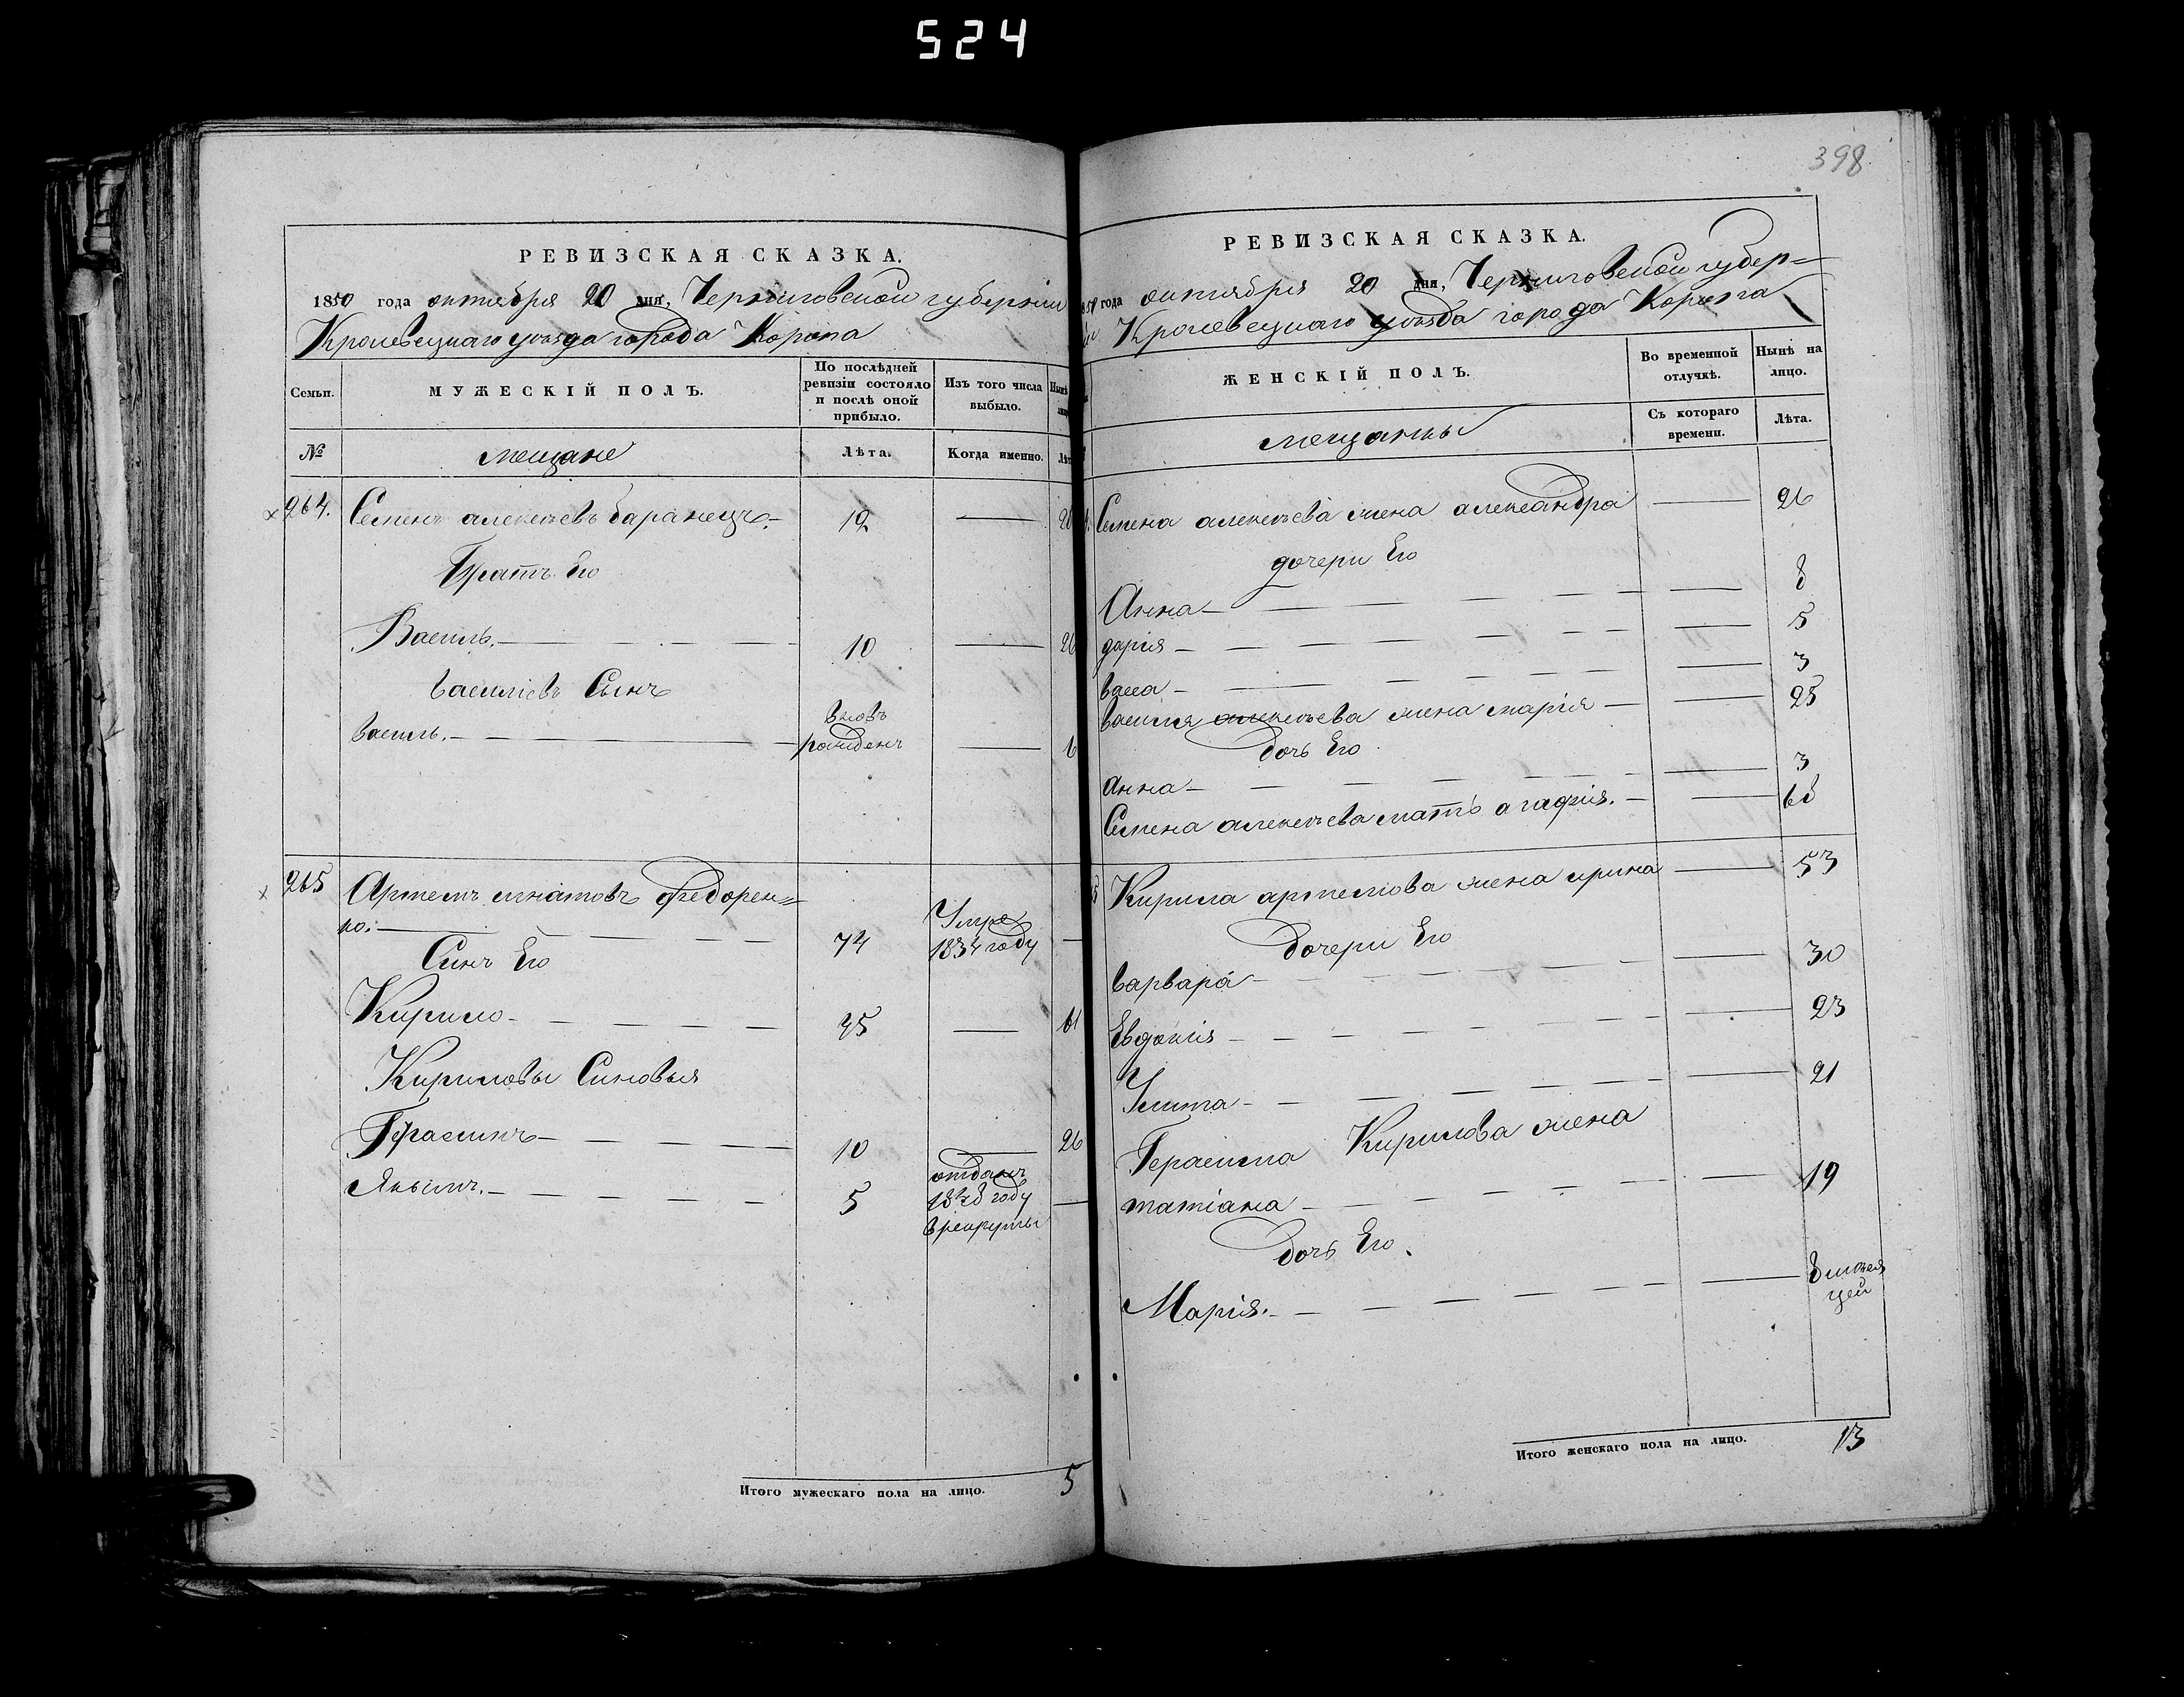 524
РЕВИЗСКАЯ СКАЗКА.
1850 года октября 20 дня, Черниговской губернии
Кролевецкаго уѣзда города Коропа
Семьи.
МУЖЕСКІЙ ПОЛЪ.
По послѣдней ревизіи состояло и послѣ оной прибыло.
Изъ того числа выбыло.
Нынѣ
№
мещане
Лѣта.
Когда именно.
264. Семенъ алексѣевъ баранецъ. 12 — 28
Братъ Его
Василь. 10 — 26
василіевъ Сынъ
василь. вновь рожденъ — 6
265 Артемъ игнатовъ федорен=
ко. 74 Умре 1834 году —
Синъ Его
Кирило 45 — 61
Кириловы Синовья
Герасимъ 10 — 26
Якымъ. 5 отданъ 1848 году врекруты —
Итого мужескаго пола на лицо. 5
398
РЕВИЗСКАЯ СКАЗКА.
1850 года октября 20 дня, Черниговской губер=
ніи Кролевецкаго уѣзда города Коропа
ЖЕНСКІЙ ПОЛЪ.
Во временной отлучкѣ.
Нынѣ на лицо.
мещанки
Съ котораго времени.
Лѣта.
Семена алексѣева жена александра — 26
дочери Его
Анна — 8
дарія — 5
васса — 3
василя алексѣева жена марія — 25
дочь Его
анна — 3
Семена алексѣева мать агафія. — 68
Кирила артемова жена ирина — 53
дочери Его
варвара — 30
Евдокія — 23
Улита — 21
Герасима Кирилова жена
татіана — 19
дочь Его.
Марія. — 8 мѣся
цей
Итого женскаго пола на лицо. 13